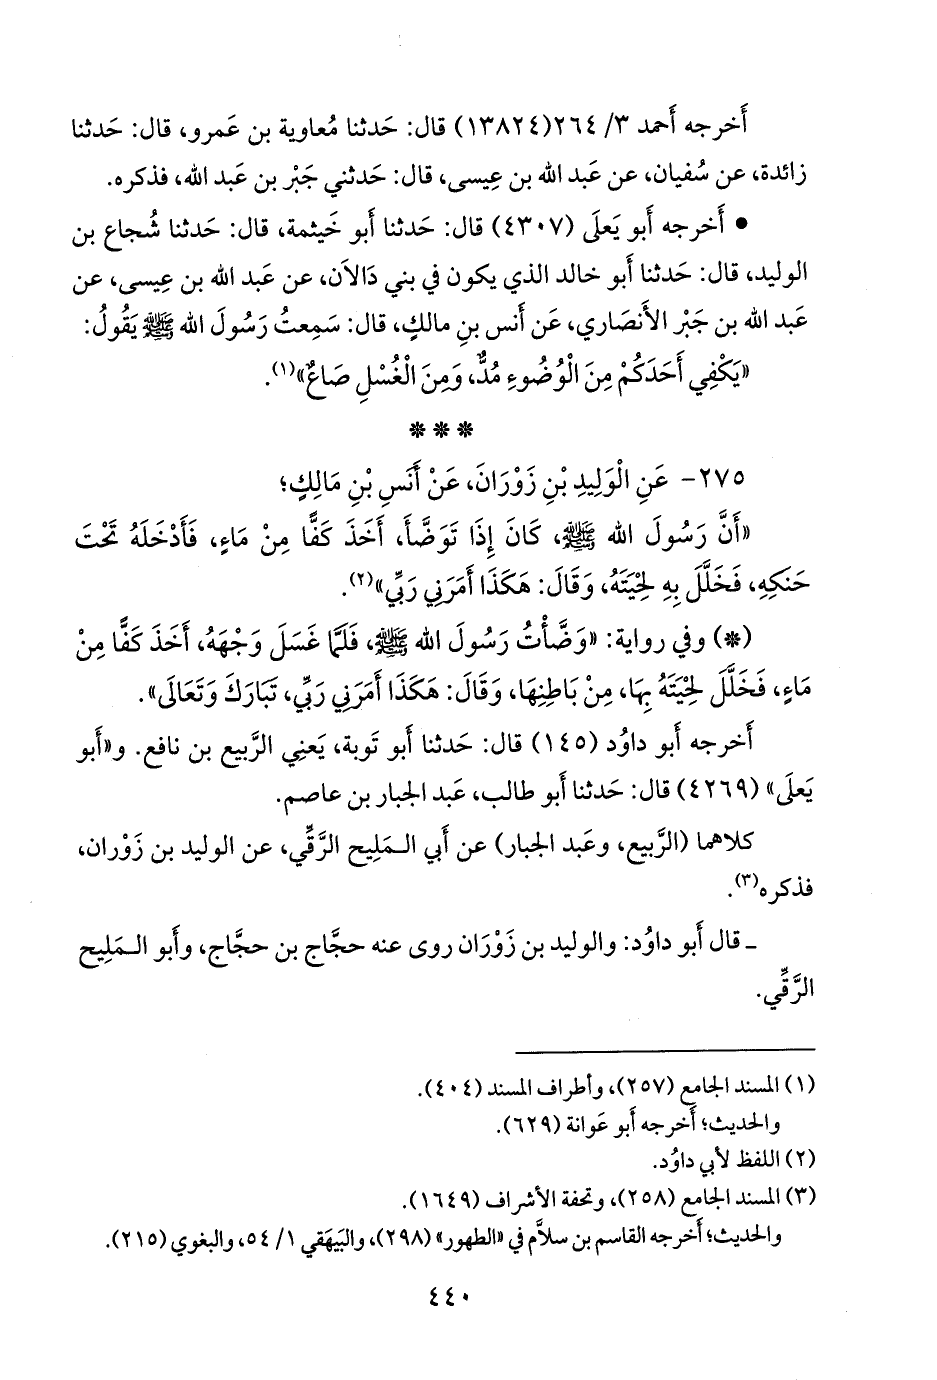 أَخرجه أَحمد ٣/ ٢٦٤(١٣٨٢٤) قال: حَدثنا مُعاوية بن عَمرو، قال: حَدثنا
زائدة، عن سُفيان، عن عَبد الله بن عِيسى، قال: حَدثني جَبْر بن عَبد الله، فذكره.
• أَخرجه أَبو يَعلَى (٤٣٠٧) قال: حَدثنا أَبو خَيثمة، قال: حَدثنا شُجاع بن
الوليد، قال: حَدثنا أَبو خالد الذي يكون في بني دَالاَن، عن عَبد الله بن عِيسى، عن
عَبد الله بن جَبْر الأَنصَاري، عَن أَنس بنِ مالكٍ، قال: سَمِعتُ رَسُولَ الله ﷺ يَقُولُ:
«يَكْفِي أَحَدَكُمْ مِنَ الْوُضُوءِ مُدٌّ، وَمِنَ الْغُسْلِ صَاعٌ»(١).
* * *
٢٧٥- عَنِ الْوَلِيدِ بْنِ زَوْرَانَ، عَنْ أَنَسِ بْنِ مَالِكٍ؛
«أَنَّ رَسُولَ الله ﷺ، كَانَ إِذَا تَوَضَّأَ، أَخَذَ كَفًّا مِنْ مَاءٍ، فَأَدْخَلَهُ تَحْتَ
حَنَكِهِ، فَخَلَّلَ بِهِ لِحْيَتَهُ، وَقَالَ: هَكَذَا أَمَرَنِي رَبِّي»(٢).
(*) وفي رواية: «وَضَّأْتُ رَسُولَ الله ﷺ، فَلَمَّا غَسَلَ وَجْهَهُ، أَخَذَ كَفًّا مِنْ
مَاءٍ، فَخَلَّلَ لِحْيَتَهُ بِهَا، مِنْ بَاطِنِهَا، وَقَالَ: هَكَذَا أَمَرَنِي رَبِّي، تَبَارَكَ وَتَعَالَى».
أَخرجه أَبو داوُد (١٤٥) قال: حَدثنا أَبو تَوبة، يَعنِي الرَّبيع بن نافع. و«أَبو
يَعلَى» (٤٢٦٩) قال: حَدثنا أَبو طالب، عَبد الجبار بن عاصم.
كلاهما (الرَّبيع، وعَبد الجبار) عن أَبي المَلِيح الرَّقِّي، عن الوليد بن زَوْران،
فذكره(٣).
ـ قال أَبو داوُد: والوليد بن زَوْرَان روى عنه حجَّاج بن حجَّاج، وأَبو المَلِيح
الرَّقِّي.
(١) المسند الجامع (٢٥٧)، وأطراف المسند (٤٠٤).
والحديث؛ أَخرجه أَبو عَوانة (٦٢٩).
(٢) اللفظ لأبي داوُد.
(٣) المسند الجامع (٢٥٨)، وتحفة الأشراف (١٦٤٩).
والحديث؛ أَخرجه القاسم بن سلاَّم في «الطهور» (٢٩٨)، والبَيهَقي ١/ ٥٤، والبغوي (٢١٥).
٤٤٠